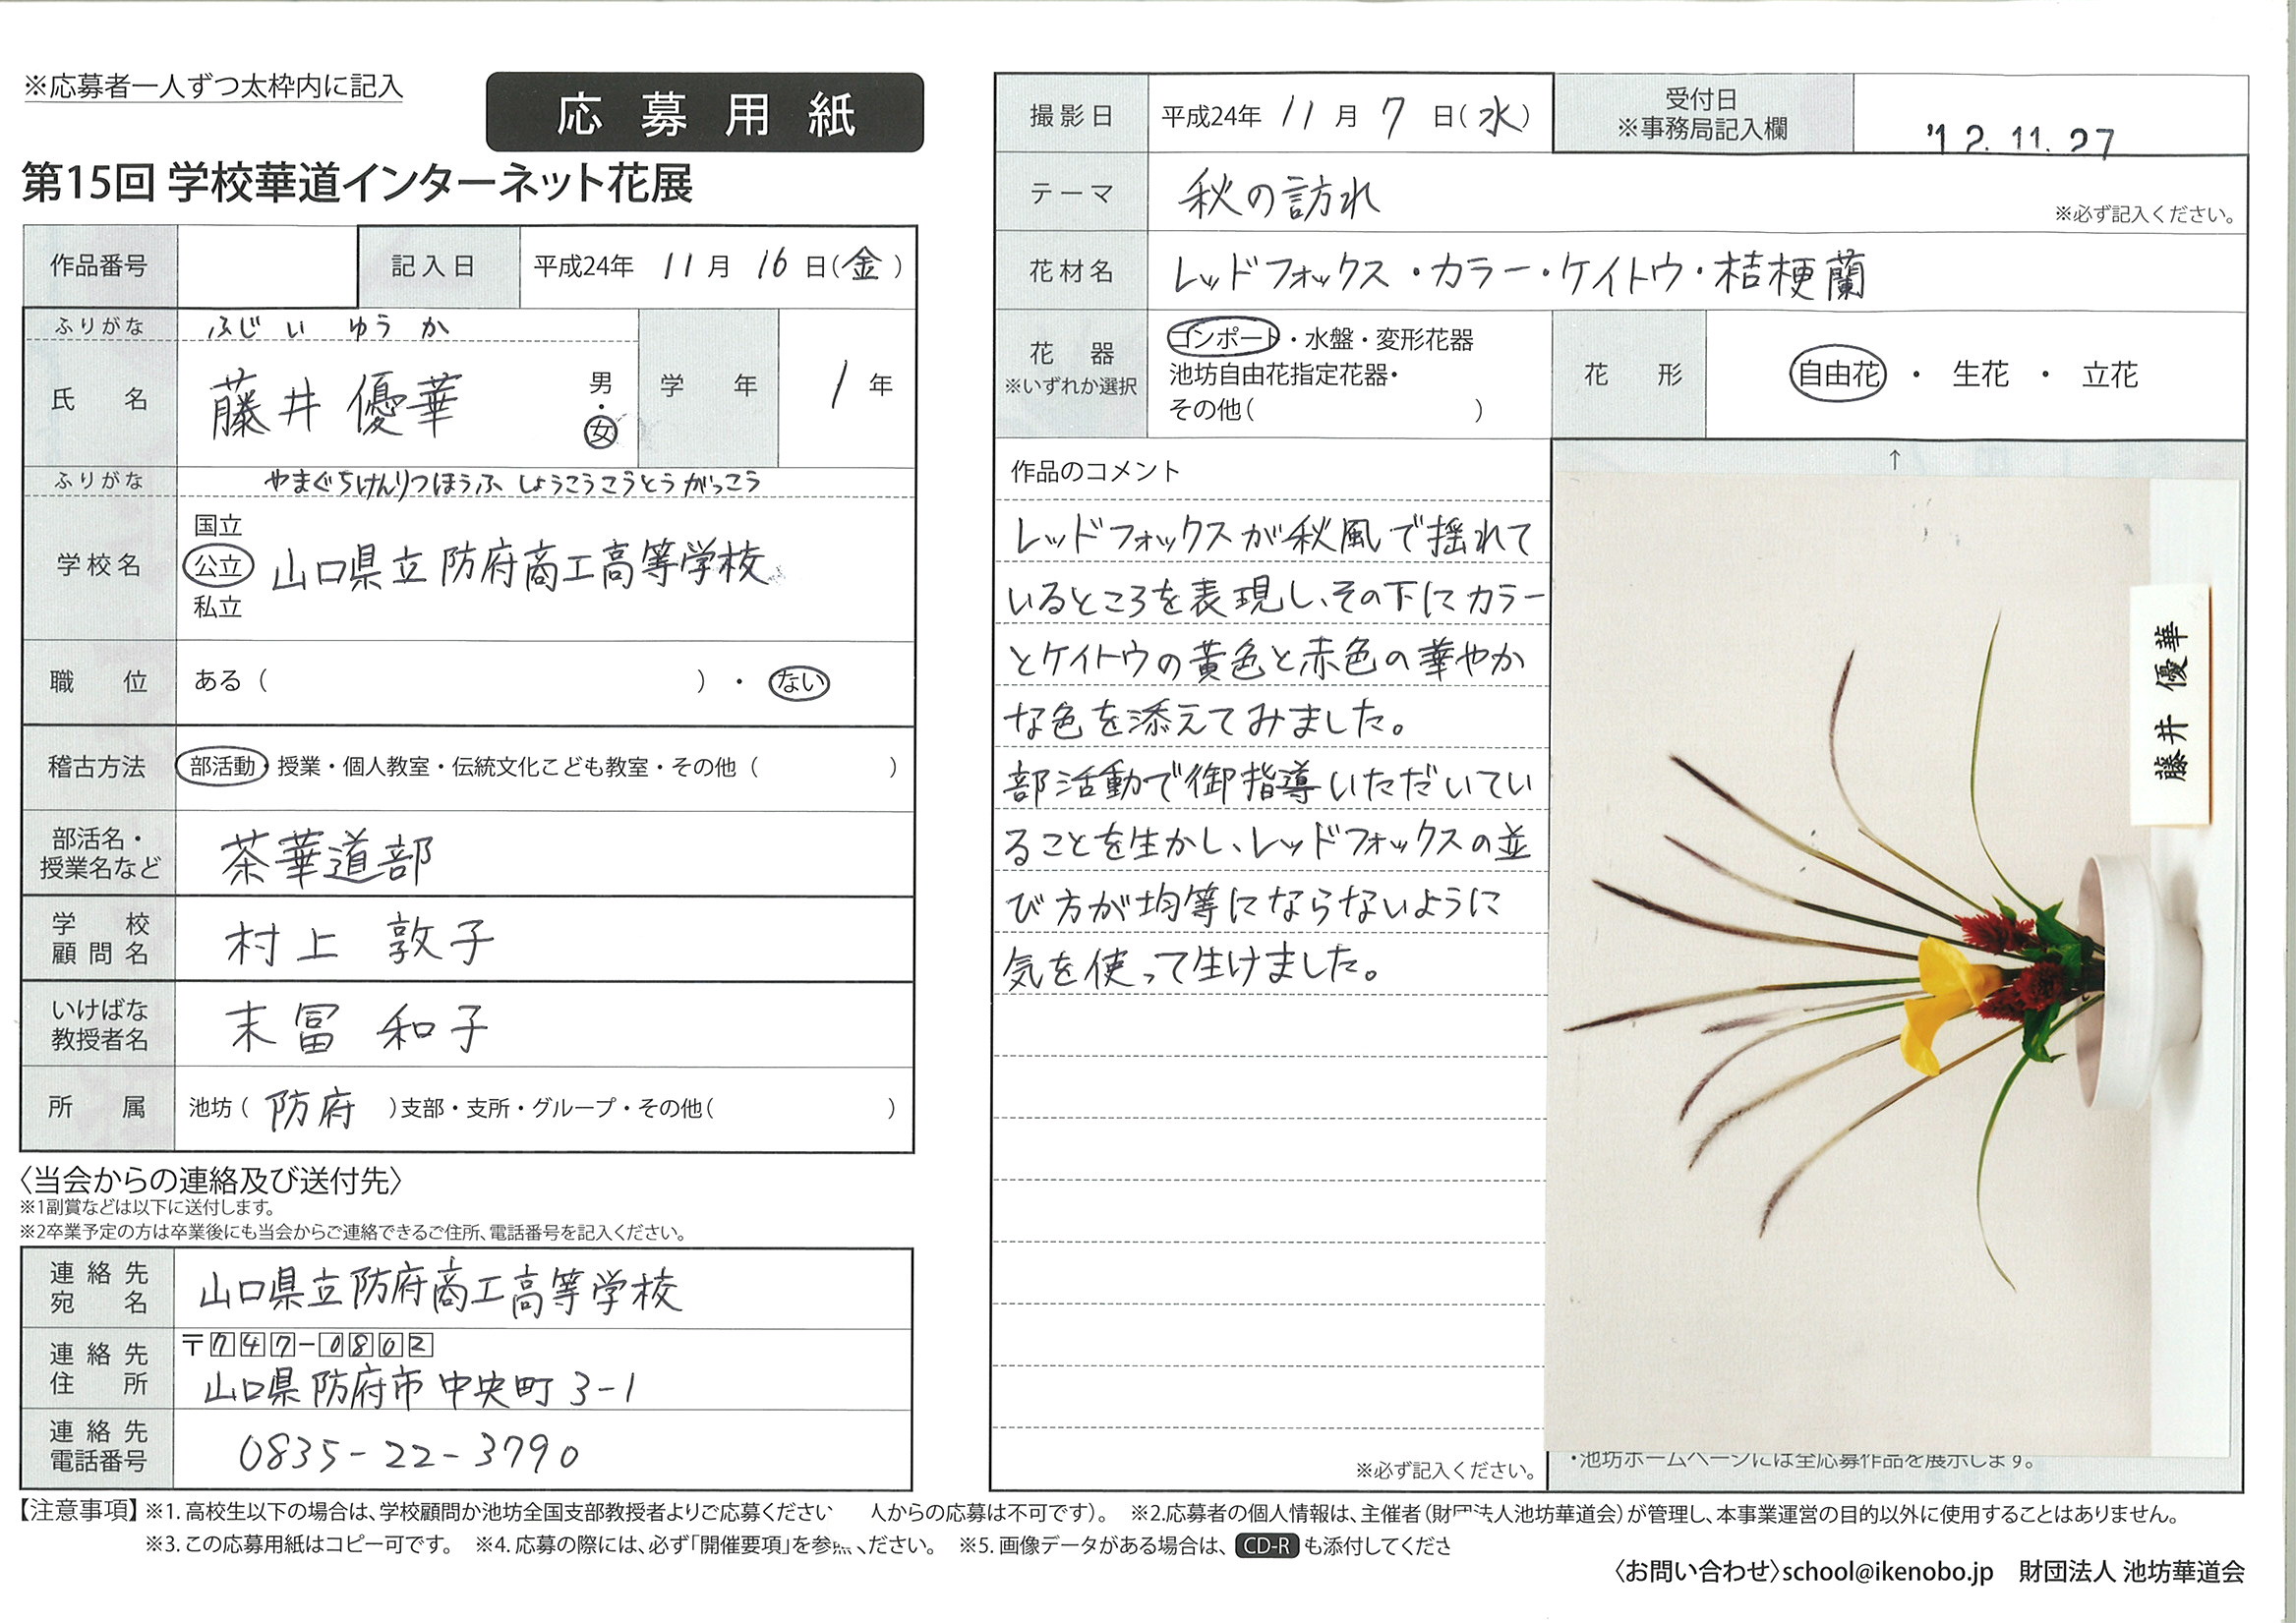 ※応募者一人ずつ太枠内に記入
応募用紙
第15回 学校華道インターネット花展
作品番号
記入日 平成24年 11月 16日(金)
ふりがな ふじい ゆうか
氏名 藤井 優華 男・女
学年 1年
ふりがな やまぐちけんりつほうふしょうこうこうとうがっこう
学校名 国立
公立 山口県立防府商工高等学校
私立
職位 ある( )・ない
稽古方法 部活動・授業・個人教室・伝統文化こども教室・その他( )
部活名・授業名など 茶華道部
学校顧問名 村上 敦子
いけばな教授者名 末冨 和子
所属 池坊(防府)支部・支所・グループ・その他( )
〈当会からの連絡及び送付先〉
※1副賞などは以下に送付します。
※2卒業予定の方は卒業後にも当会からご連絡できるご住所、電話番号を記入ください。
連絡先宛名 山口県立防府商工高等学校
連絡先住所 〒747-0802
山口県防府市中央町3-1
連絡先電話番号 0835-22-3790
撮影日 平成24年 11月 7日(水)
受付日
※事務局記入欄 '12.11.27
テーマ 秋の訪れ ※必ず記入ください。
花材名 レッドフォックス・カラー・ケイトウ・桔梗蘭
花器 ※いずれか選択
コンポート・水盤・変形花器
池坊自由花指定花器・
その他( )
花形 自由花・生花・立花
作品のコメント
レッドフォックスが秋風で揺れて
いるところを表現し、その下にカラー
とケイトウの黄色と赤色の華やか
な色を添えてみました。
部活動で御指導いただいてい
ることを生かし、レッドフォックスの並
び方が均等にならないように
気を使って生けました。
※必ず記入ください。
↑
藤井 優華
・池坊ホームページには全応募作品を展示します。
【注意事項】※1.高校生以下の場合は、学校顧問か池坊全国支部教授者よりご応募ください 人からの応募は不可です)。 ※2.応募者の個人情報は、主催者(財団法人池坊華道会)が管理し、本事業運営の目的以外に使用することはありません。
※3.この応募用紙はコピー可です。 ※4.応募の際には、必ず「開催要項」を参照ください。 ※5.画像データがある場合は、CD-Rも添付してくださ
〈お問い合わせ〉school@ikenobo.jp 財団法人 池坊華道会